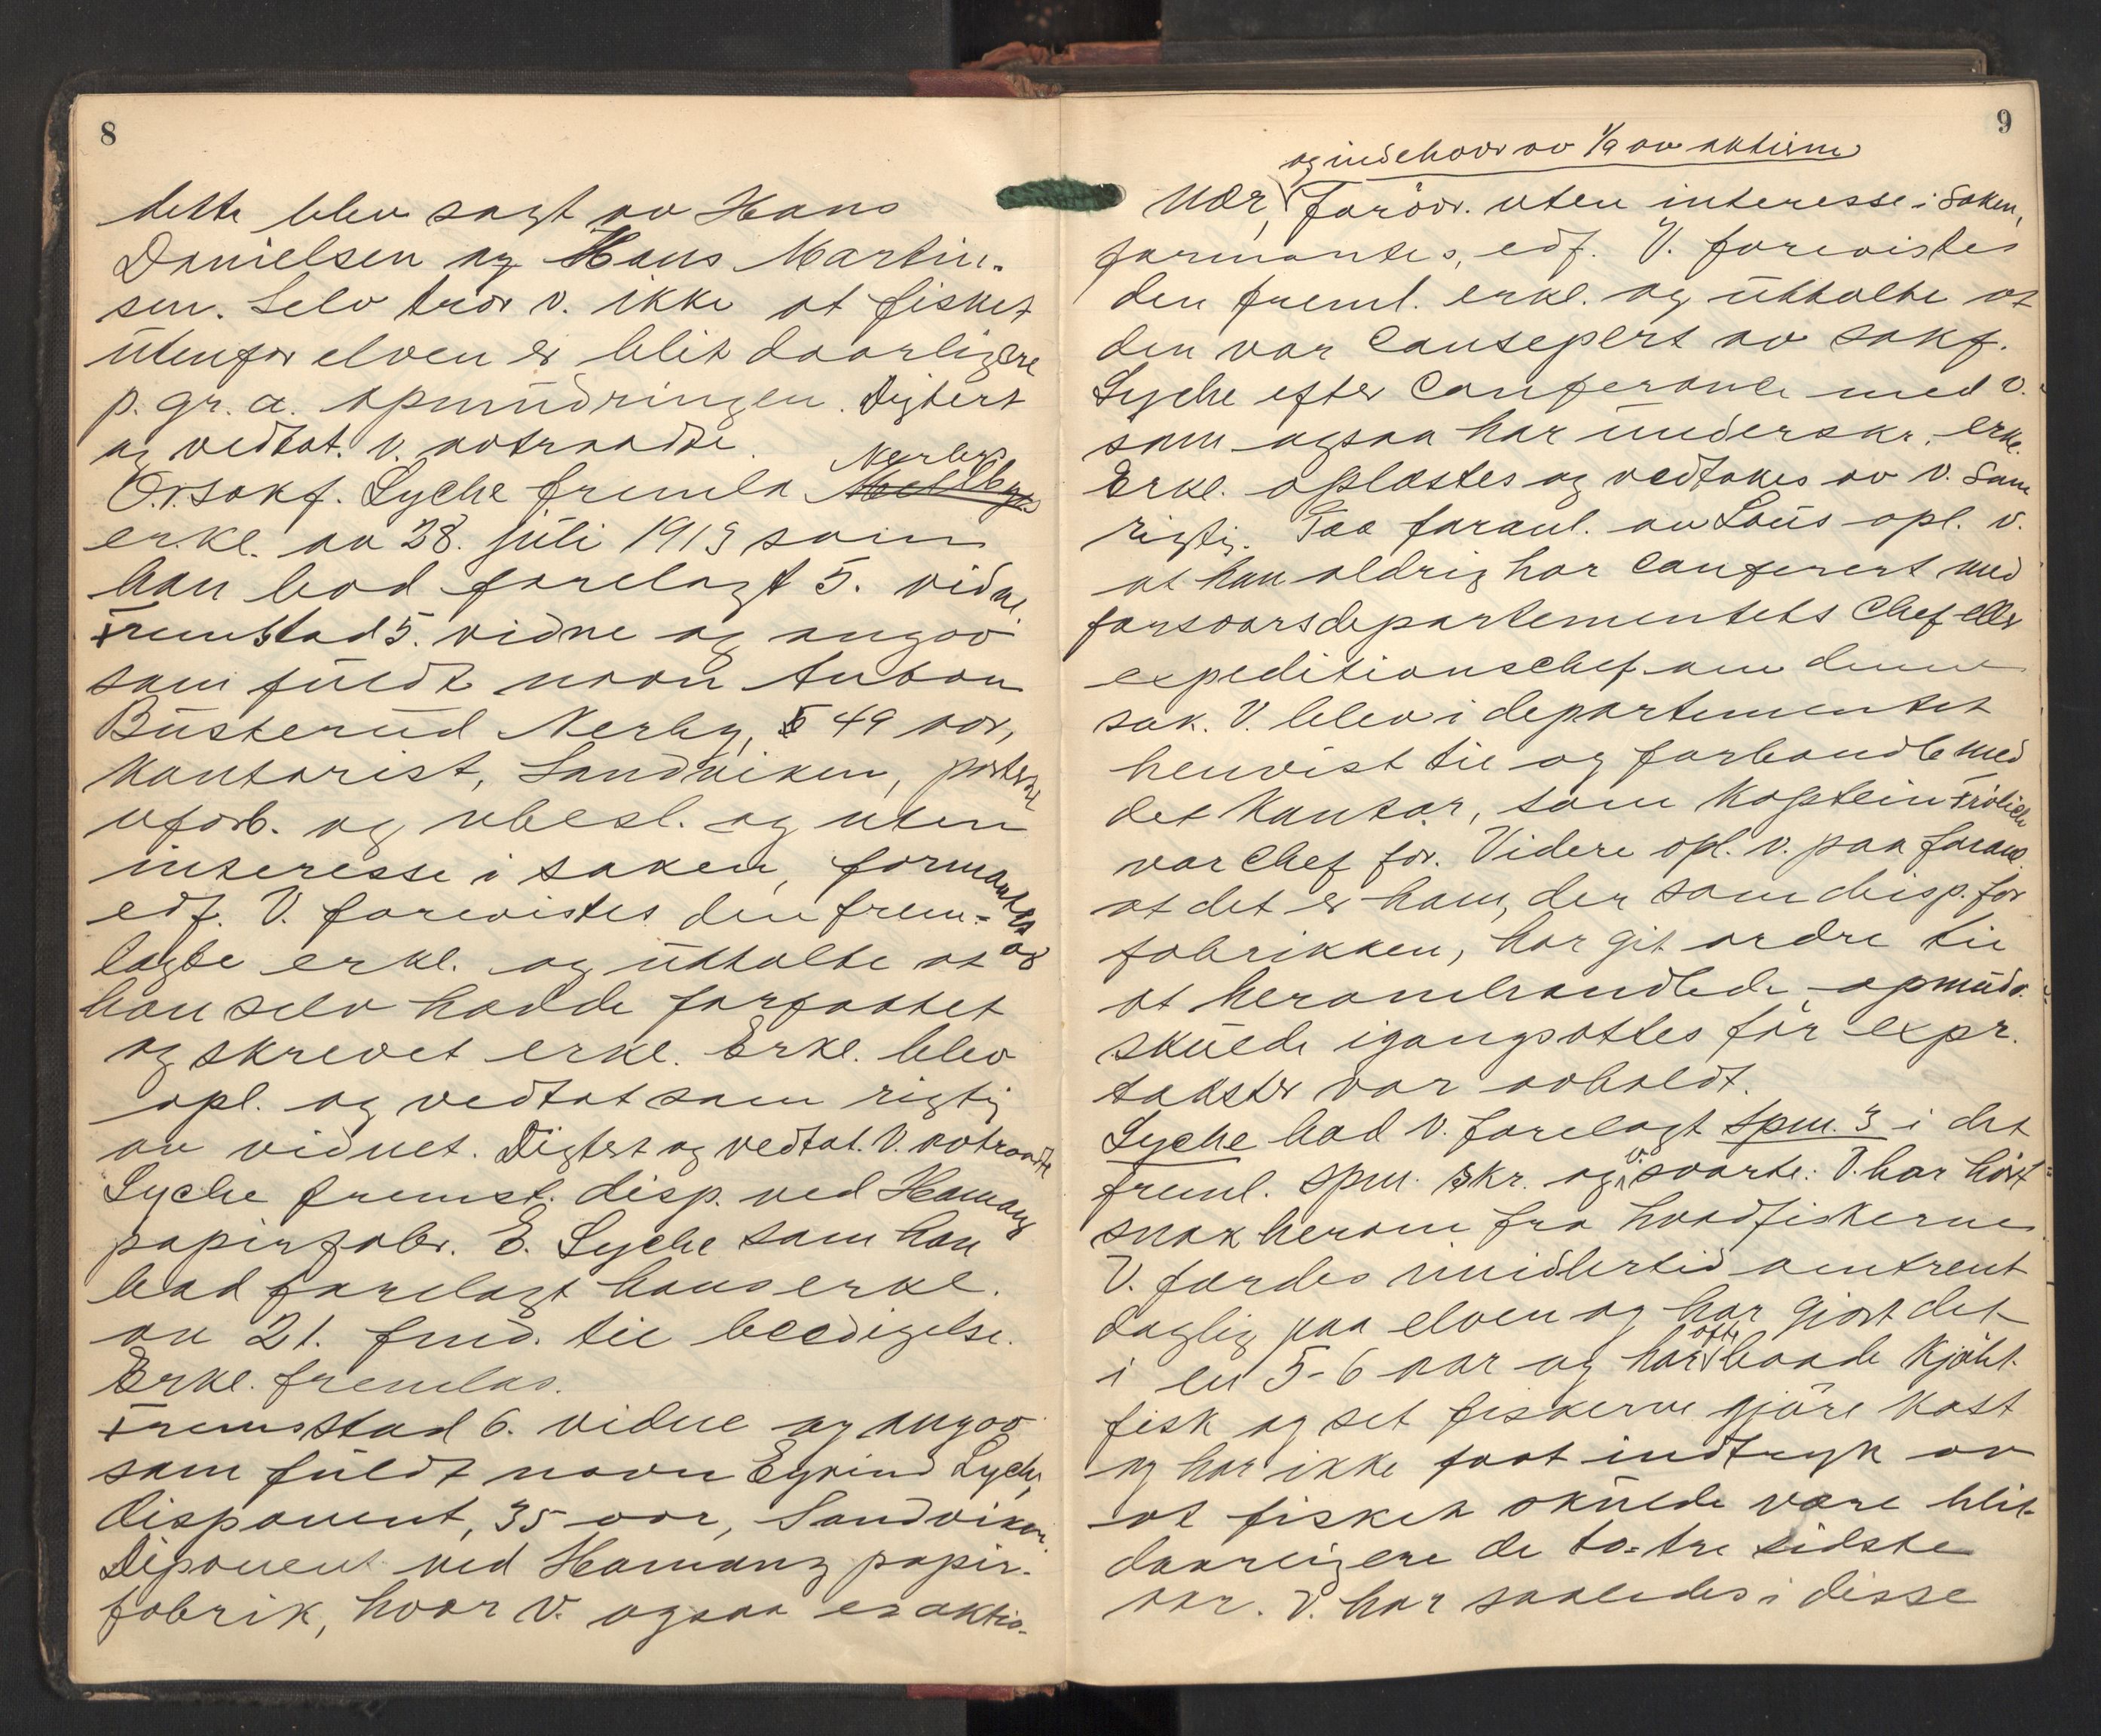 8
dette blev sagt av Hans
Danielsen og Hans Martin-
sen. Selv tror v. ikke at fisket
utenfor elven er blit daarligere
p. gr. a. opmudringen. Digtert
og vedtat. V. avtraadte.
O.r.sakf. Lyche fremla Nerbys
erkl. av 28. juli 1919 som
han bad forelagt 5. vidne
Fremstod 5. vidne og angav
som fuldt navn Anton
Busterud Nerby, 49 aar,
Kontorist, Sandviken,
uforb. og ubesl. og uten
interesse i saken, formantes og
edf. V. forevistes den frem-
lagte erkl. og uttalte at
han selv hadde forfattet
og skrevet erkl. Erkl. blev
opl. og vedtat som rigtig
av vidnet. Digtert og vedtat. V. avtraadte
Lyche fremst. disp. ved Hamang
papirfabr. E. Lyche som han
bad forelagt hans erkl.
av 21. fmd. til beedigelse.
Erkl. fremlas.
Fremstod 6. vidne og angav
som fuldt navn Eyvind Lyche,
disponent, 35 aar, Sandviken.
Diponent ved Hamang papir-
fabrik, hvor V. ogsaa er aktio-
9
og indehaver av 1/9 av aktierne
nær, Forøvr. uten interesse i saken,
formantes, edf. V. forevistes
den freml. erkl. og uttalte at
den var consepert av sakf.
Lyche efter conferance med v.
som ogsaa har underskr. erkl.
Erkl. oplæstes og vedtokes av v. som
rigtig. Paa foranl. av Lous opl. v.
at han aldrig har conferert med
forsvarsdepartementets chef eller
expeditionschef om denne
sak. V. blev i departementet
henvist til og forhandle med
det kontor, som Kaptein Frölich
var chef for. Videre opl. v. paa foranl.
at det er ham, der som disp. for
fabrikken, har git ordre til
at heromhandlede opmudr.
skulde igangsættes før expr.
takster var avholdt.
Lyche bad v. forelagt spm. 3 i det
freml. spm. skr. og v. svarte: V. har hört
snak herom fra hvadfiskerne
V. færdes imidlertid omtrent
daglig paa elven og har gjort det
i en 5-6 aar og har ofte baade kjöbt
fisk og set fiskerne gjöre kast
og har ikke faat indtryk av
at fisket skulde være blit
daarligere de to-tre sidste
aar. V. har saaledes i disse